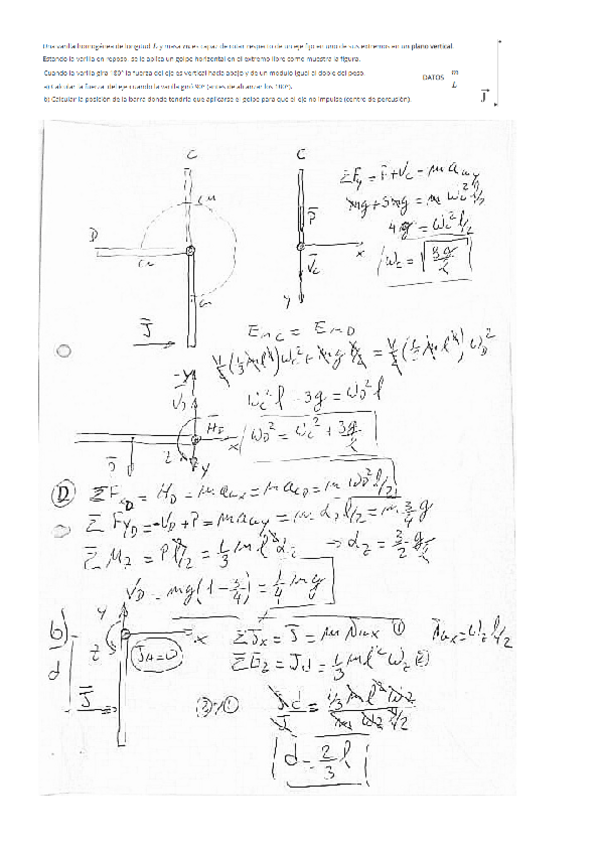 Una varilla homogénea de longitud L y masa m es capaz de rotar respecto de un eje fijo en uno de sus extremos en un plano vertical.
Estando la varilla en reposo, se le aplica un golpe horizontal en el extremo libre como muestra la figura.
Cuando la varilla gira 180° la fuerza del eje es vertical hacia abajo y de un módulo igual al doble del peso.
a) Calcular la fuerza del eje cuando la varilla giró 90° (antes de alcanzar los 180°).
b) Calcular la posición de la barra donde tendría que aplicarse el golpe para que el eje no impulse (centro de percusión).
DATOS m
L
J
C
C
cm
D
P
x
Vc
y
J
ΣFy = P + Vc = m a
4g = ωc² l/2
Em C = Em D
ωc² l + 3g = ωD² l
ωD² = ωc² + 3g/l
-y
VD
x
z
y
P
D
ΣFxD = HD = m = m = m ωD² l/2
ΣFyD = -VD + P = m = m l/2 = m 3/4 g
ΣMz = P l/2 = 1/3 m l² αz → αz = 3/2 g/l
VD = mg(1 - 3/4) = 1/4 mg
b)
y
z
x
d
J
ΣJx = J = m (1) = ωz l/2
= Jd = 1/3 m l² ωz (2)
(2)/(1)
d = 2/3 l